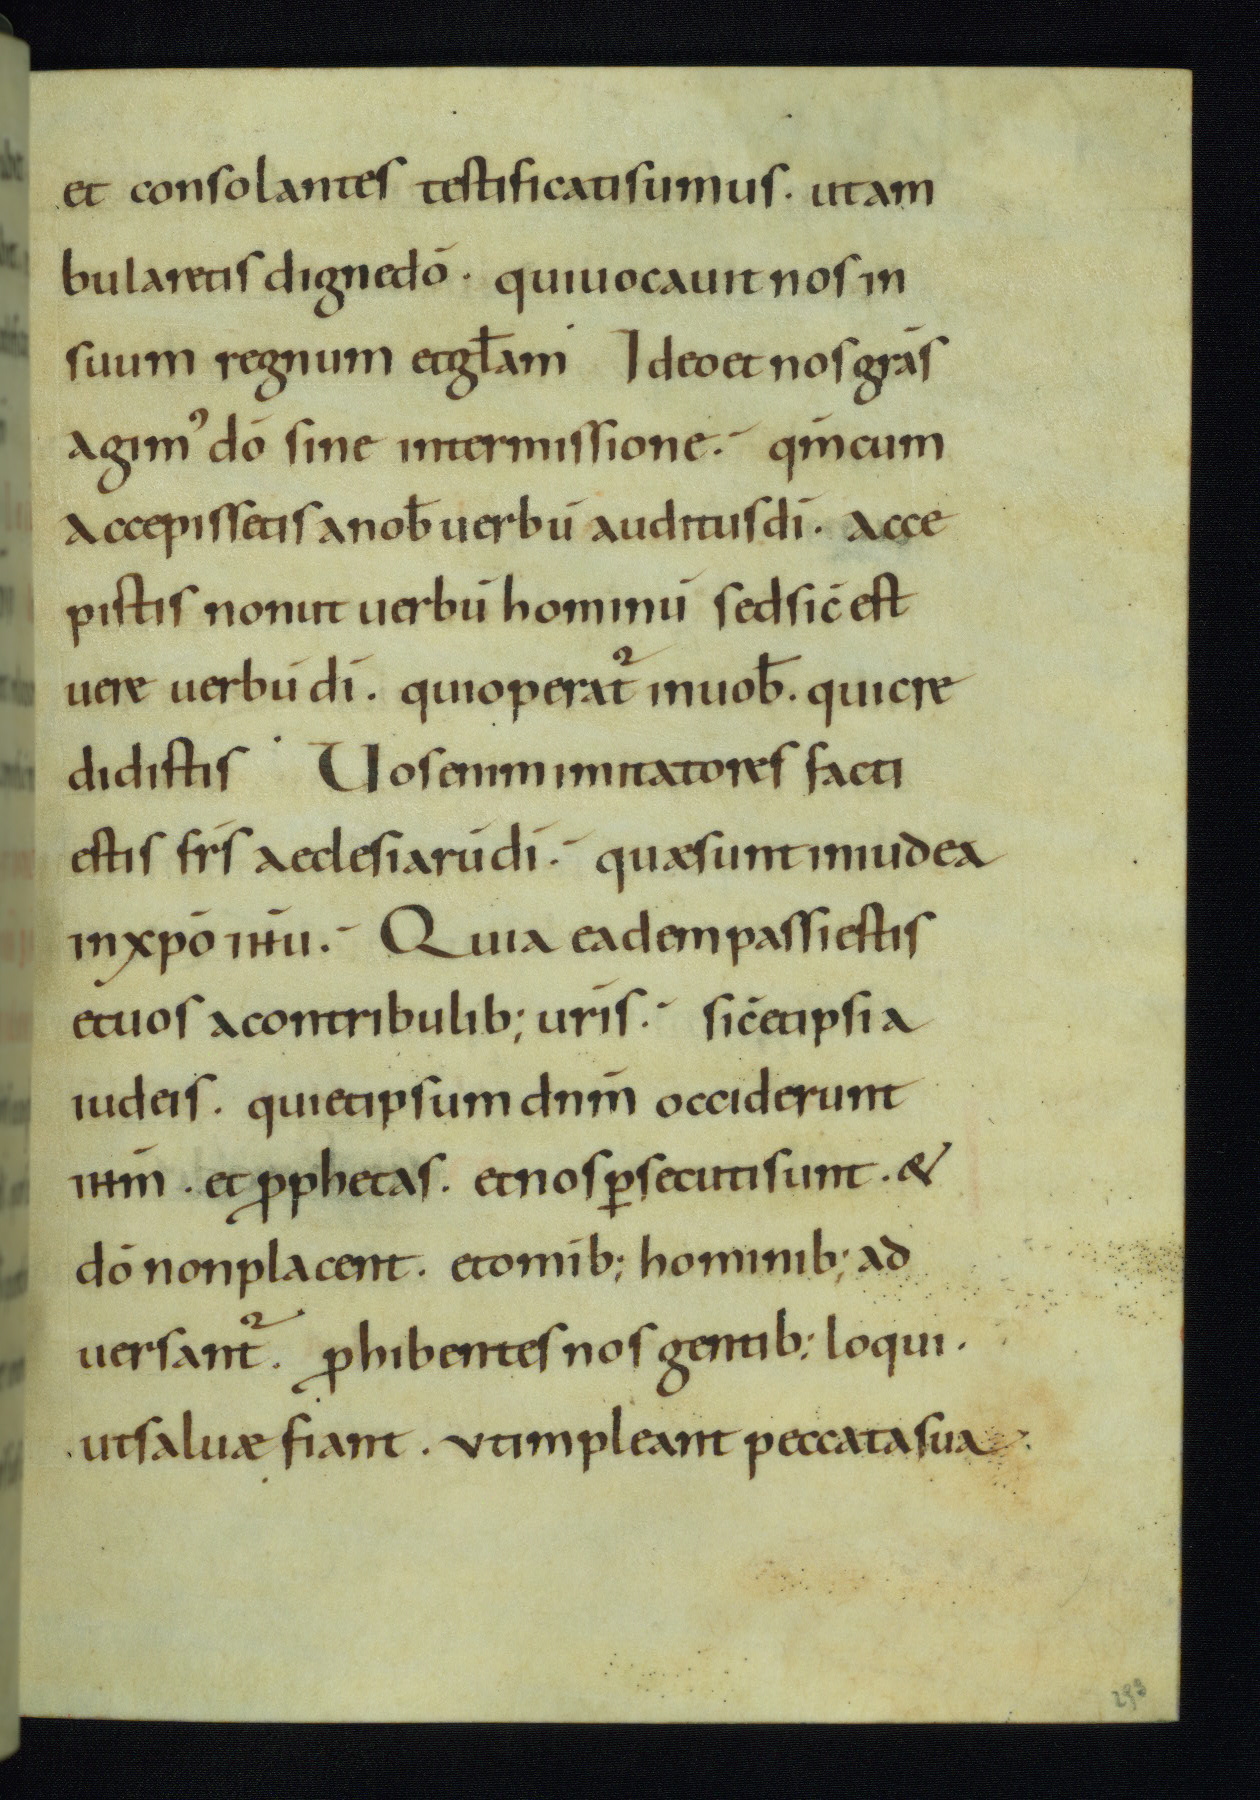 et consolantes testificatisumus. utam
bularetis dignedō. quiuocauit nos in
suum regnum etgl̄am Ideoet nos grās
agimꝰ dō sine intermissione. qm̄cum
accepissetis anob̄ uerbū auditusdī. acce
pistis nonut uerbū hominū sedsic̄ est
uere uerbū dī. quioperat᷑ inuob̄. quicre
didistis Uosenim imitatores facti
estis fr̄s aeclesiarūdī. quæsuntiniudea
inxpō ihū. Quia eadempassiestis
etuos acontribulib; ur̄is. sic̄etipsi a
iudeis. quietipsum dnm̄ occiderunt
ihm̄. et ꝓphetas. etnosꝑsecutisunt. &
dō nonplacent. etomīb; hominib; ad
uersant᷑. ꝓhibentes nos gentib; loqui.
utsaluæ fiant. utimpleant peccatasua.